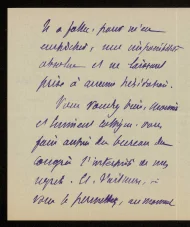 Il a fallu, pour m'en
empêcher, une impossibilité
absolue et ne laissant
prise à aucune hésitation.
Vous voudrez bien, Monsieur
et éminent collègue, vous
faire auprès du bureau du
Congrès l'interprète de mes
regrets. Et d'ailleurs,
vous le permettez, au moment